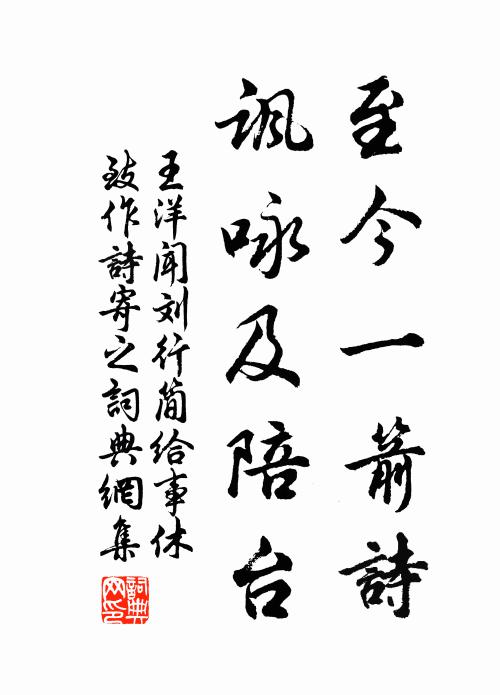 至今一箭詩
諷咏及陪台
王洋闻刘行简给事休
致作詩寄之詞典網集
詞典网印